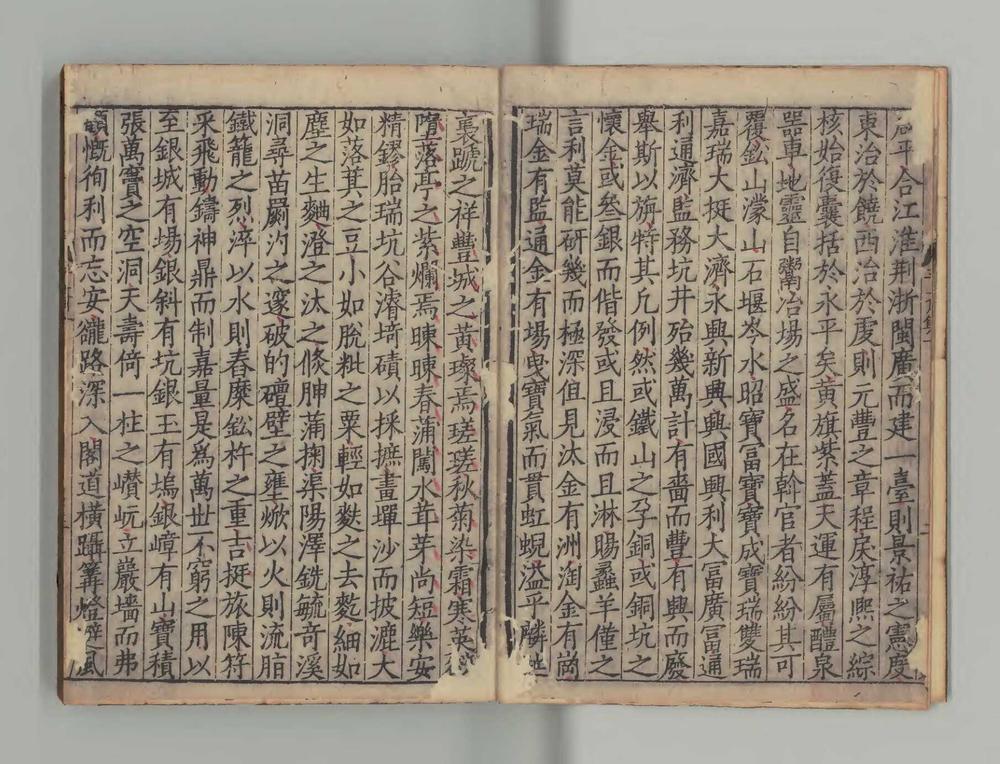 平合江淮荆浙閩廣而建一臺則景祐之憲度
東治於饒西治於虔則元豐之章程戾淳熙之綜
核始復囊括於永平矣黄旗紫蓋天運有屬醴泉
噐車地靈自鬻冶場之盛名在斡官者紛紛其可
覆鈆山濛山石堰岑水昭寶冨寶寶成寶瑞雙瑞
嘉瑞大挺大濟永興新興興國興利大冨廣冨通
利通濟監務坑井殆幾萬計有嗇而豊有興而廢
舉斯以旃特其凡例然或鐵山之孕銅或銅坑之
懷金或叅銀而偕發或且浸而且淋暘蠡羊僅之
言利莫能研幾而極深但見汰金有洲淘金有崗
瑞金有監通金有場曳寶氣而貫虹蜺溢乎麟
褭蹏之祥豐城之黄璨焉瑳瑳秋菊染霜寒英
墮落亭之紫爛焉暕暕春蒲闖水茸芽尚短樂安
精鏐胎瑞坑谷濬埼磧以採摭畫墠沙而披漉大
如落萁之豆小如脫粃之粟輕如麩之去麧細如
塵之生麯澄之汰之倏胂蒲掬渠陽澤銑毓奇溪
洞尋苗罽汋之邃破的礓壁之壅焮以火則流脂
鐵籠之烈淬以水則舂糜鈆杵之重吉挺旅陳符
采飛動鑄神鼎而制嘉量是為萬世不窮之用以
至銀城有場銀斜有坑銀玉有塢銀嶂有山寶積
張萬寶之空洞天壽倚一柱之巑岏立巖墻而弗
慨徇利而忘安巃路深入閣道横躡篝燈避風